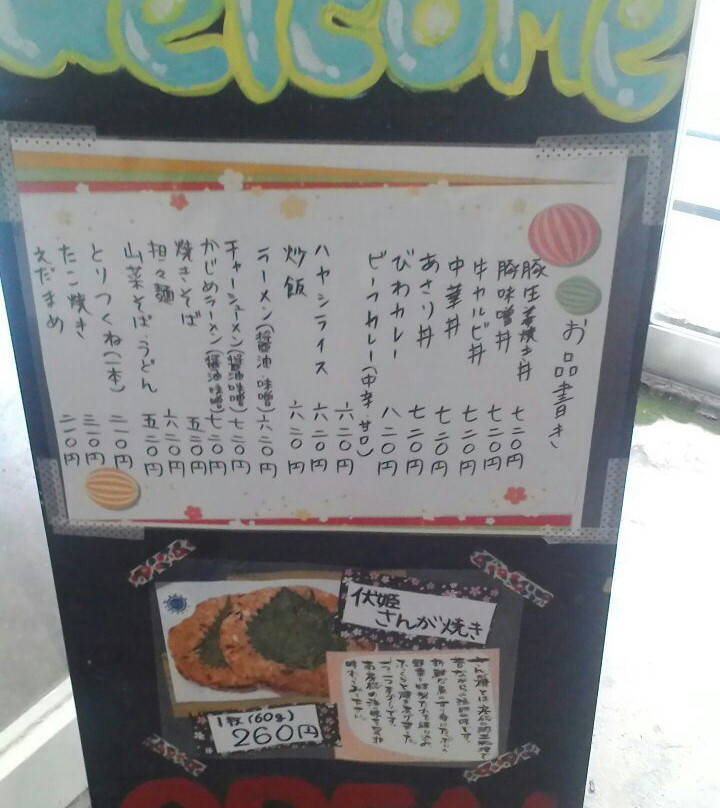 Welcome
お品書き
豚生姜焼き丼 七二〇円
豚味噌丼 七二〇円
牛カルビ丼 七二〇円
中華丼 七二〇円
あさり丼 七二〇円
びわカレー 八二〇円
ビーフカレー(中辛・甘口) 六二〇円
ハヤシライス 六二〇円
炒飯 六二〇円
ラーメン(醤油・味噌) 六二〇円
チャーシューメン(醤油・味噌) 七二〇円
かじめラーメン(醤油・味噌) 七二〇円
焼きそば 五二〇円
担々麺 六二〇円
山菜そば・うどん 五二〇円
とりつくね(一本) 二一〇円
たこ焼き
えだまめ 二一〇円
伏姫
さんが焼き
さんが焼とは房総の郷土料理で
昔ながらの漁師の味です。
1枚(60g)
260円
OPEN